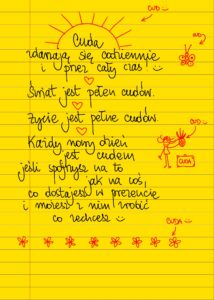 CUD
Cuda
zdarzają się codziennie
i przez cały czas!
CUD
Świat jest pełen cudów.
Życie jest pełne cudów.
CUD
Każdy nowy dzień
jest cudem
jeśli spojrzysz na to
jak na coś,
CUDA
co dostajesz w prezencie
i możesz z nim zrobić
co zechcesz
CUDA